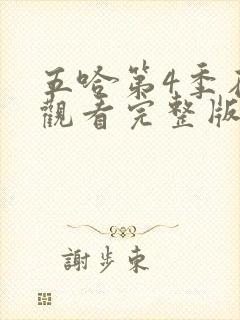 五哈第4季
觀看完整版
謝步東